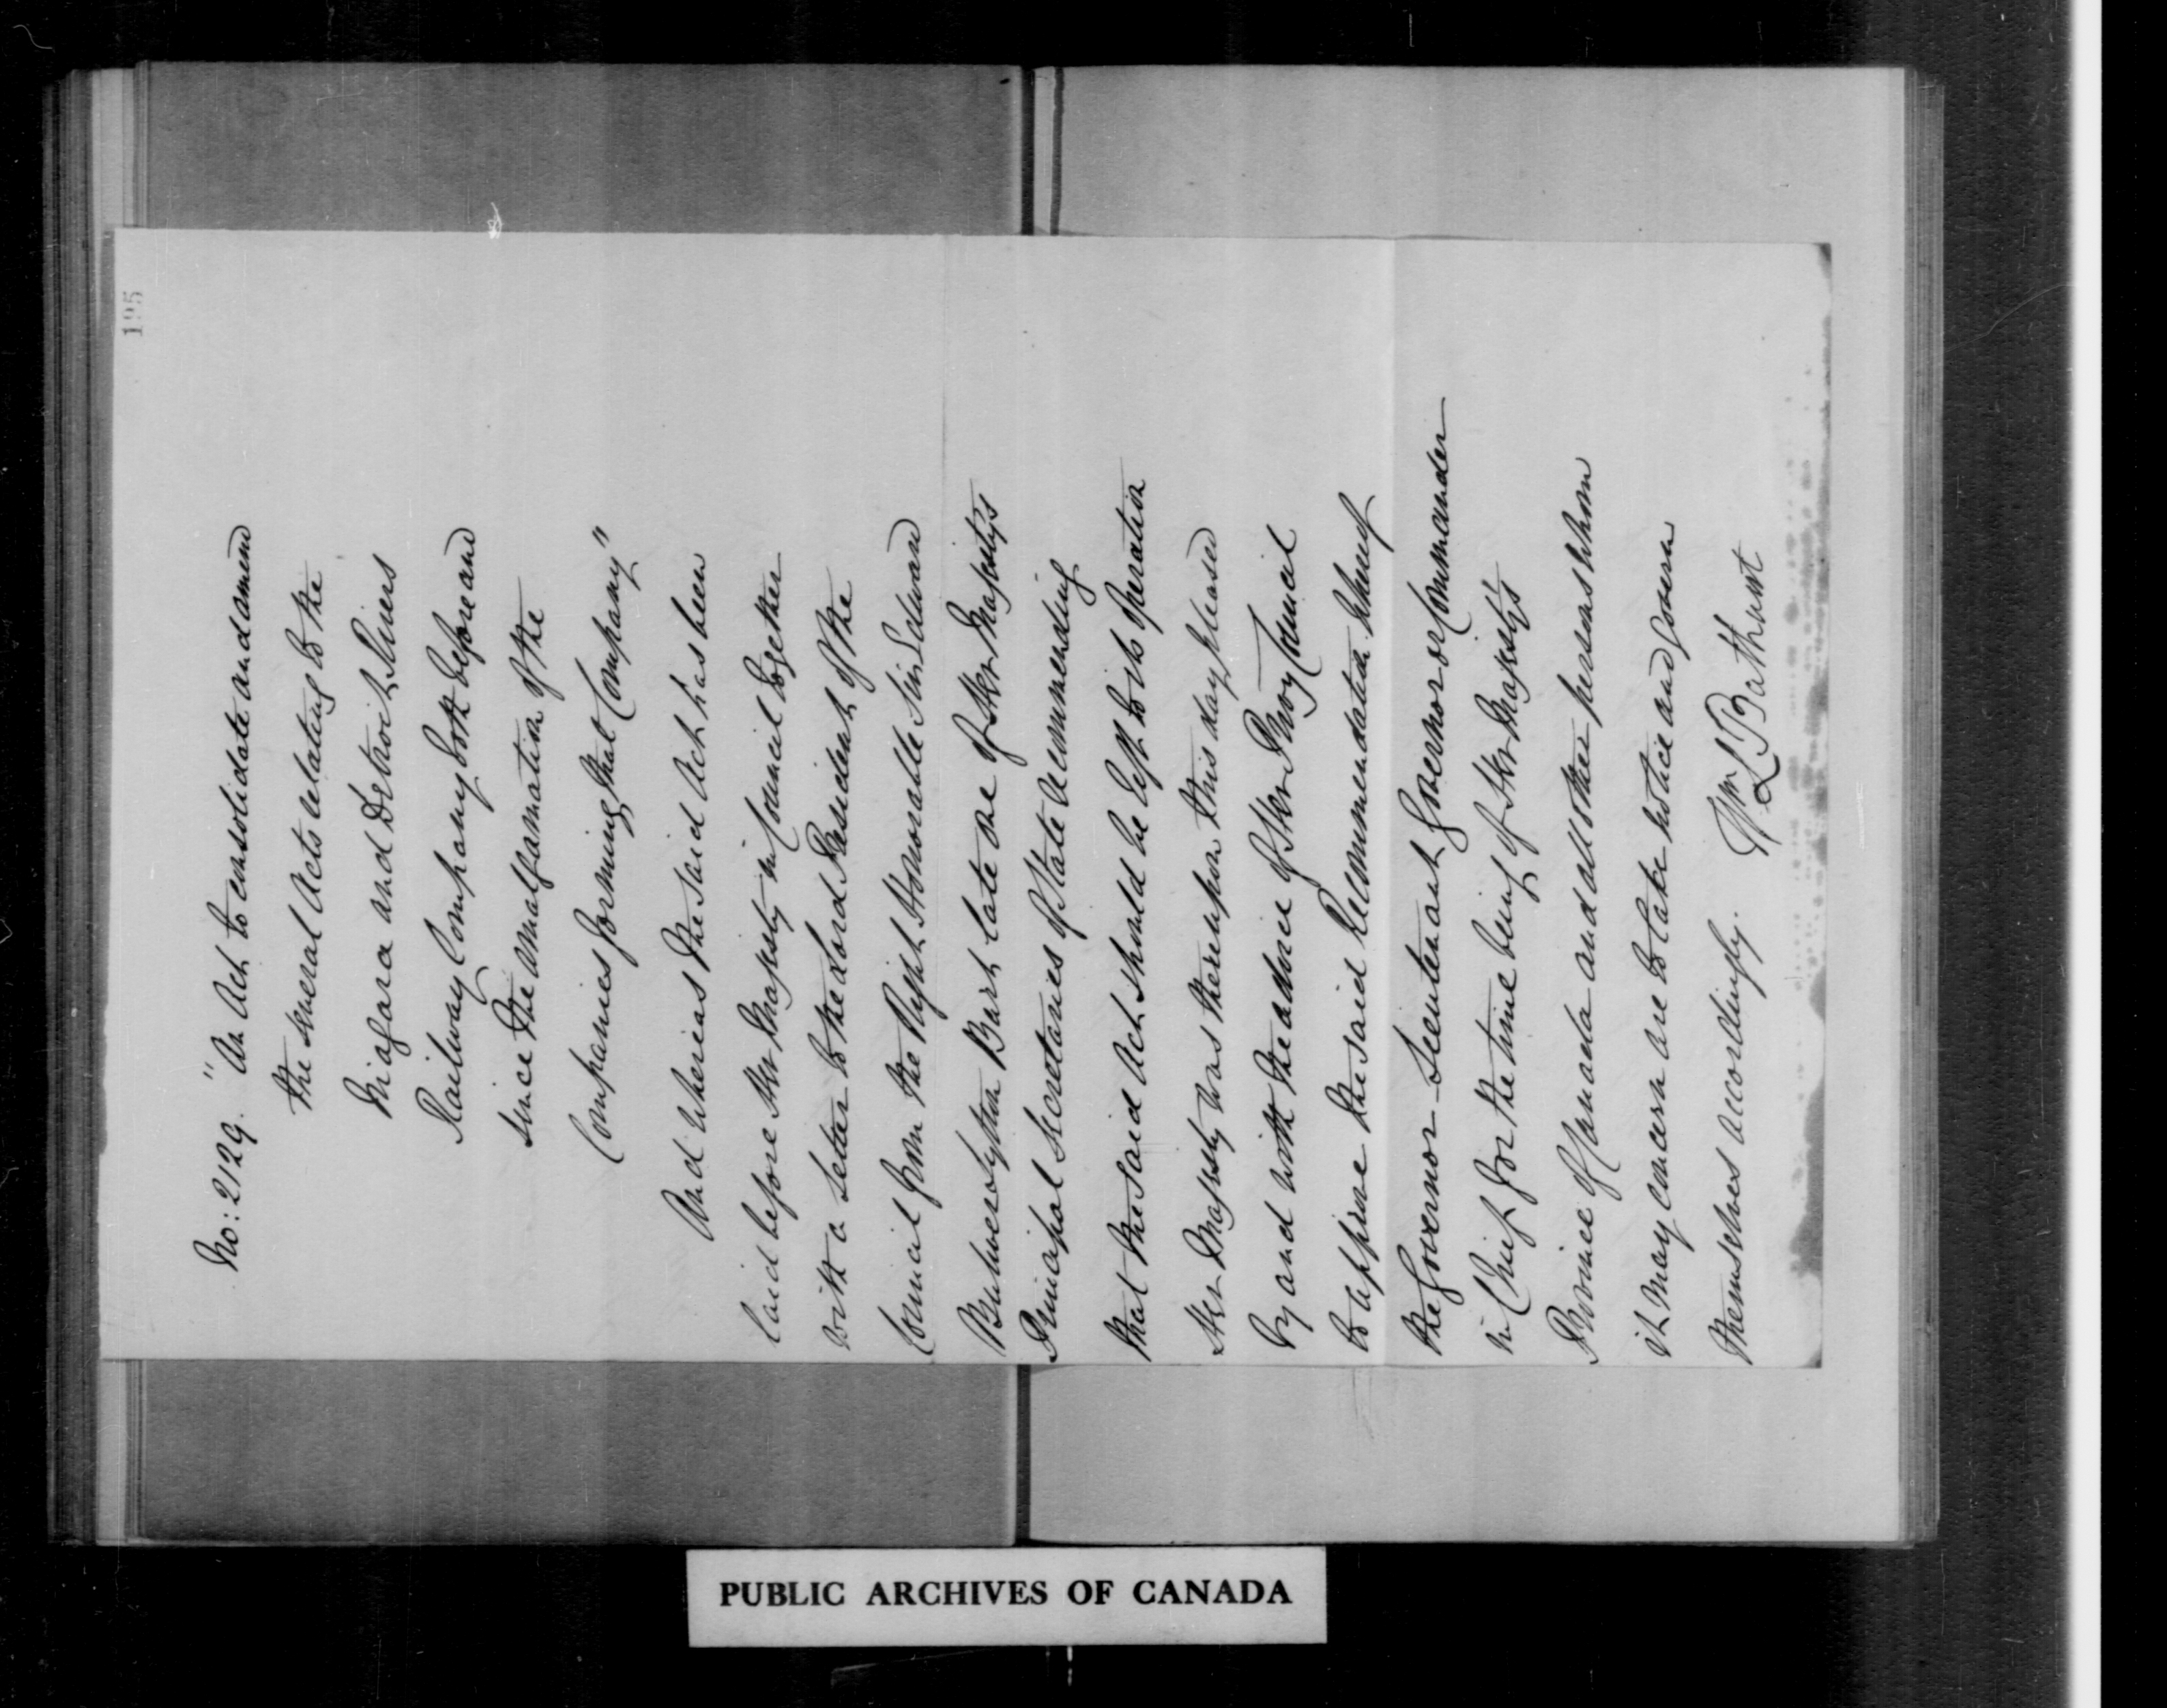 195
No: 2129. "An Act to consolidate and amend
the several Acts relating to the
Niagara and Detroit Rivers
Railway Company both before and
since the amalgamation of the
Companies forming that Company"
And Whereas the said Act has been
laid before Her Majesty in Council together
with a Letter to the Lord President of the
Council from the Right Honorable Sir Edward
Bulwer Lytton Bart late one of Her Majesty's
Principal Secretaries of State recommending
that the said Act should be left to its operation
Her Majesty was thereupon this day pleased
by and with the advice of Her Privy Council
to approve the said Recommendation Whereof
the Governor Lieutenant Governor or Commander
in Chief for the time being of Her Majesty's
Province of Canada and all other persons whom
it may concern are to take notice and govern
themselves accordingly.
Wm L Bathurst
PUBLIC ARCHIVES OF CANADA